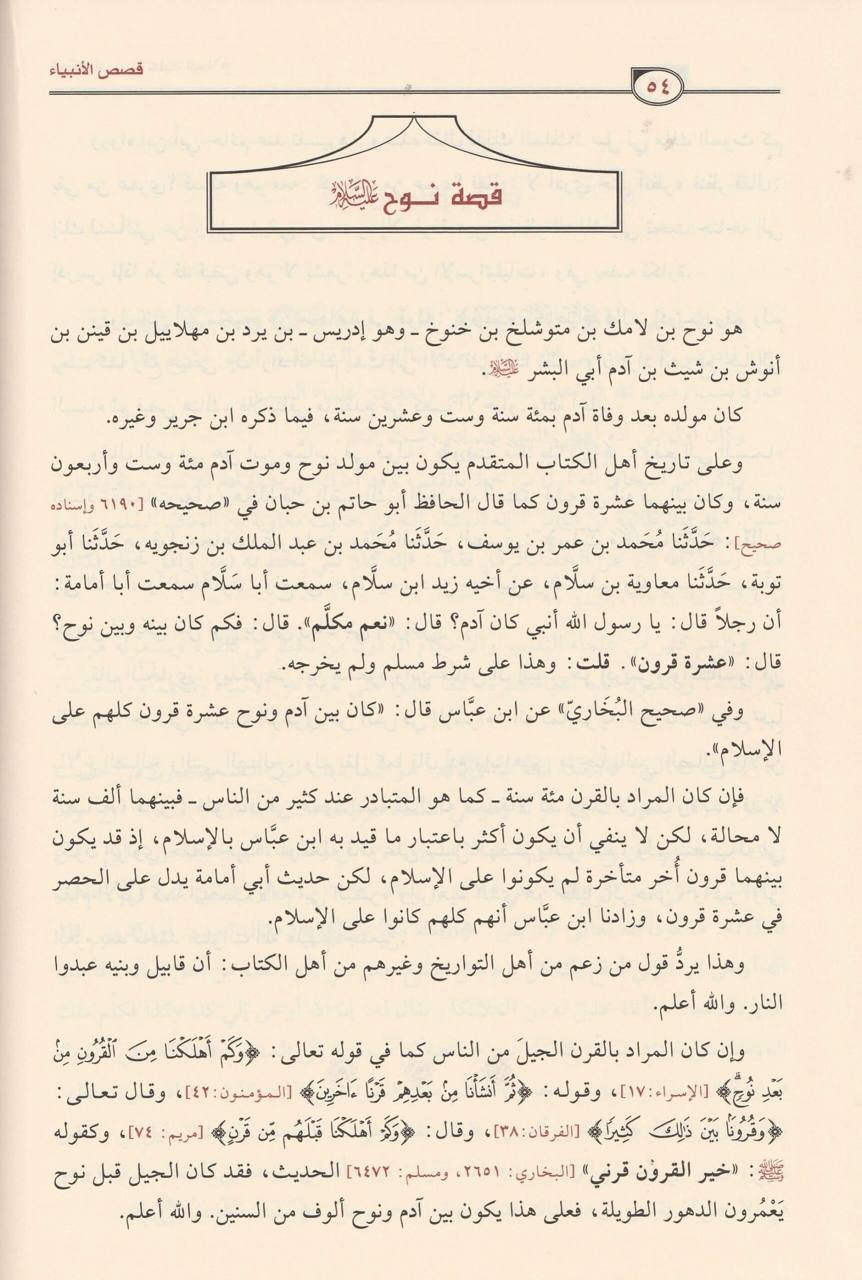 قصص الأنبياء
٥٤
قصة نوح عليه السلام
هو نوح بن لامك بن متوشلخ بن خنوخ ـ وهو إدريس ـ بن يرد بن مهلاييل بن قينن بن
أنوش بن شيث بن آدم أبي البشر عليه السلام.
كان مولده بعد وفاة آدم بمئة سنة وست وعشرين سنة، فيما ذكره ابن جرير وغيره.
وعلى تاريخ أهل الكتاب المتقدم يكون بين مولد نوح وموت آدم مئة وست وأربعون
سنة، وكان بينهما عشرة قرون كما قال الحافظ أبو حاتم بن حبان في «صحيحه» [٦١٩٠ وإسناده
صحيح]: حَدَّثَنا مُحَمد بن عمر بن يوسف، حَدَّثَنا مُحَمد بن عبد الملك بن زنجويه، حَدَّثَنا أبو
توبة، حَدَّثَنا معاوية بن سلَّام، عن أخيه زيد ابن سلَّام، سمعت أبا سَلَّام سمعت أبا أمامة:
أن رجلاً قال: يا رسول الله أنبي كان آدم؟ قال: «نعم مكلَّم». قال: فكم كان بينه وبين نوح؟
قال: «عشرة قرون». قلت: وهذا على شرط مسلم ولم يخرجه.
وفي «صحيح البُخَاريّ» عن ابن عبَّاس قال: «كان بين آدم ونوح عشرة قرون كلهم على
الإسلام».
فإن كان المراد بالقرن مئة سنة ـ كما هو المتبادر عند كثير من الناس ـ فبينهما ألف سنة
لا محالة، لكن لا ينفي أن يكون أكثر باعتبار ما قيد به ابن عبَّاس بالإسلام، إذ قد يكون
بينهما قرون أُخر متأخرة لم يكونوا على الإسلام، لكن حديث أبي أمامة يدل على الحصر
في عشرة قرون، وزادنا ابن عبَّاس أنهم كلهم كانوا على الإسلام.
وهذا يردُّ قول من زعم من أهل التواريخ وغيرهم من أهل الكتاب: أن قابيل وبنيه عبدوا
النار. والله أعلم.
وإن كان المراد بالقرن الجيلَ من الناس كما في قوله تعالى: ﴿وَكَمْ أَهْلَكْنَا مِنَ الْقُرُونِ مِنْ
بَعْدِ نُوحٍ﴾ [الإسراء:١٧]، وقوله: ﴿ثُمَّ أَنشَأْنَا مِنْ بَعْدِهِمْ قَرْنًا ءَاخَرِينَ﴾ [المؤمنون:٤٢]، وقال تعالى:
﴿وَقُرُونًا بَيْنَ ذَلِكَ كَثِيرًا﴾ [الفرقان:٣٨]، وقال: ﴿وَكَمْ أَهْلَكْنَا قَبْلَهُم مِّن قَرْنٍ﴾ [مريم: ٧٤]، وكقوله
ﷺ: «خير القرون قرني» [البخاري: ٢٦٥١، ومسلم: ٦٤٧٢] الحديث، فقد كان الجيل قبل نوح
يَعْمُرون الدهور الطويلة، فعلى هذا يكون بين آدم ونوح ألوف من السنين. والله أعلم.